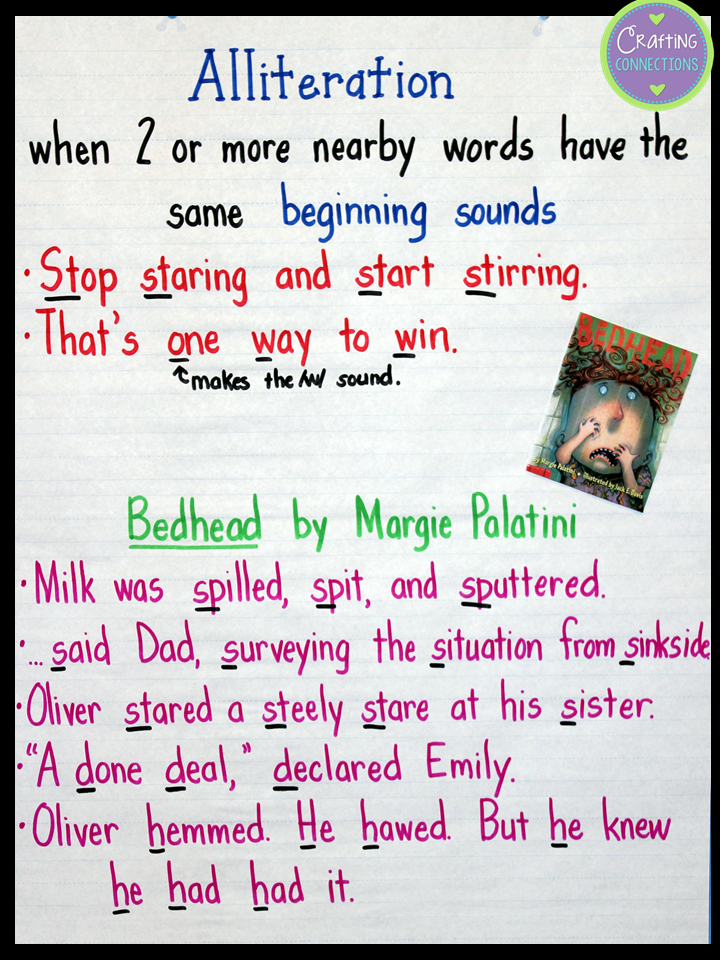 Crafting
CONNECTIONS
Alliteration
when 2 or more nearby words have the
same beginning sounds
· Stop staring and start stirring.
· That's one way to win.
makes the /w/ sound.
BEDHEAD
by Margie Palatini · Illustrated by Jack E. Davis
Bedhead by Margie Palatini
· Milk was spilled, spit, and sputtered.
· ... said Dad, surveying the situation from sinkside
· Oliver stared a steely stare at his sister.
· "A done deal," declared Emily.
· Oliver hemmed. He hawed. But he knew
he had had it.